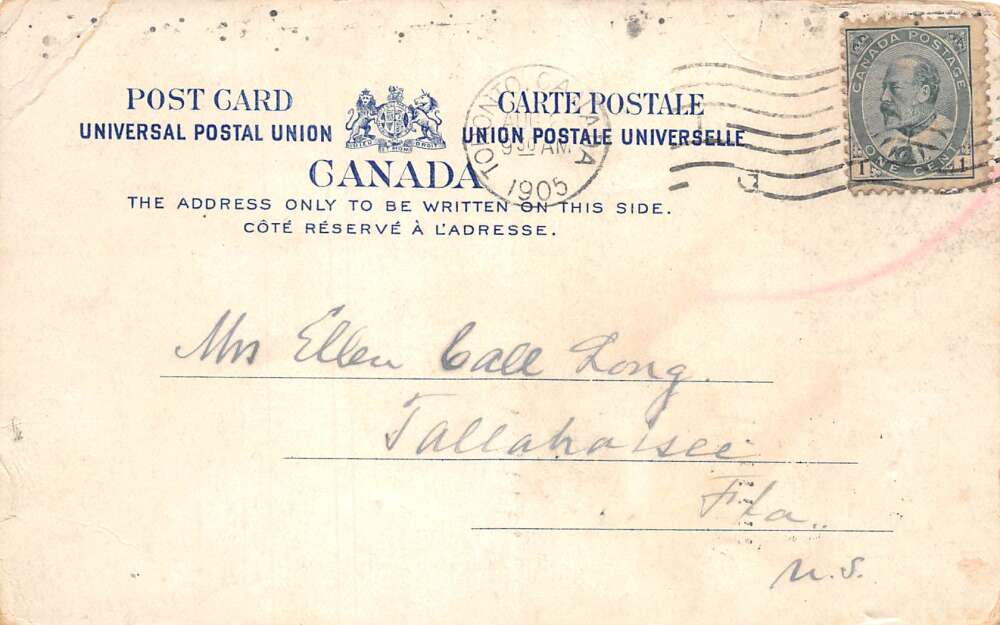 POST CARD
CARTE POSTALE
UNIVERSAL POSTAL UNION
UNION POSTALE UNIVERSELLE
CANADA
THE ADDRESS ONLY TO BE WRITTEN ON THIS SIDE.
CÔTÉ RÉSERVÉ À L'ADRESSE.
TORONTO, CANADA
9 30 AM
1905
CANADA POSTAGE
1 ONE CENT 1
Mrs Ellen Call Long.
Tallahassee
Fla..
U.S.